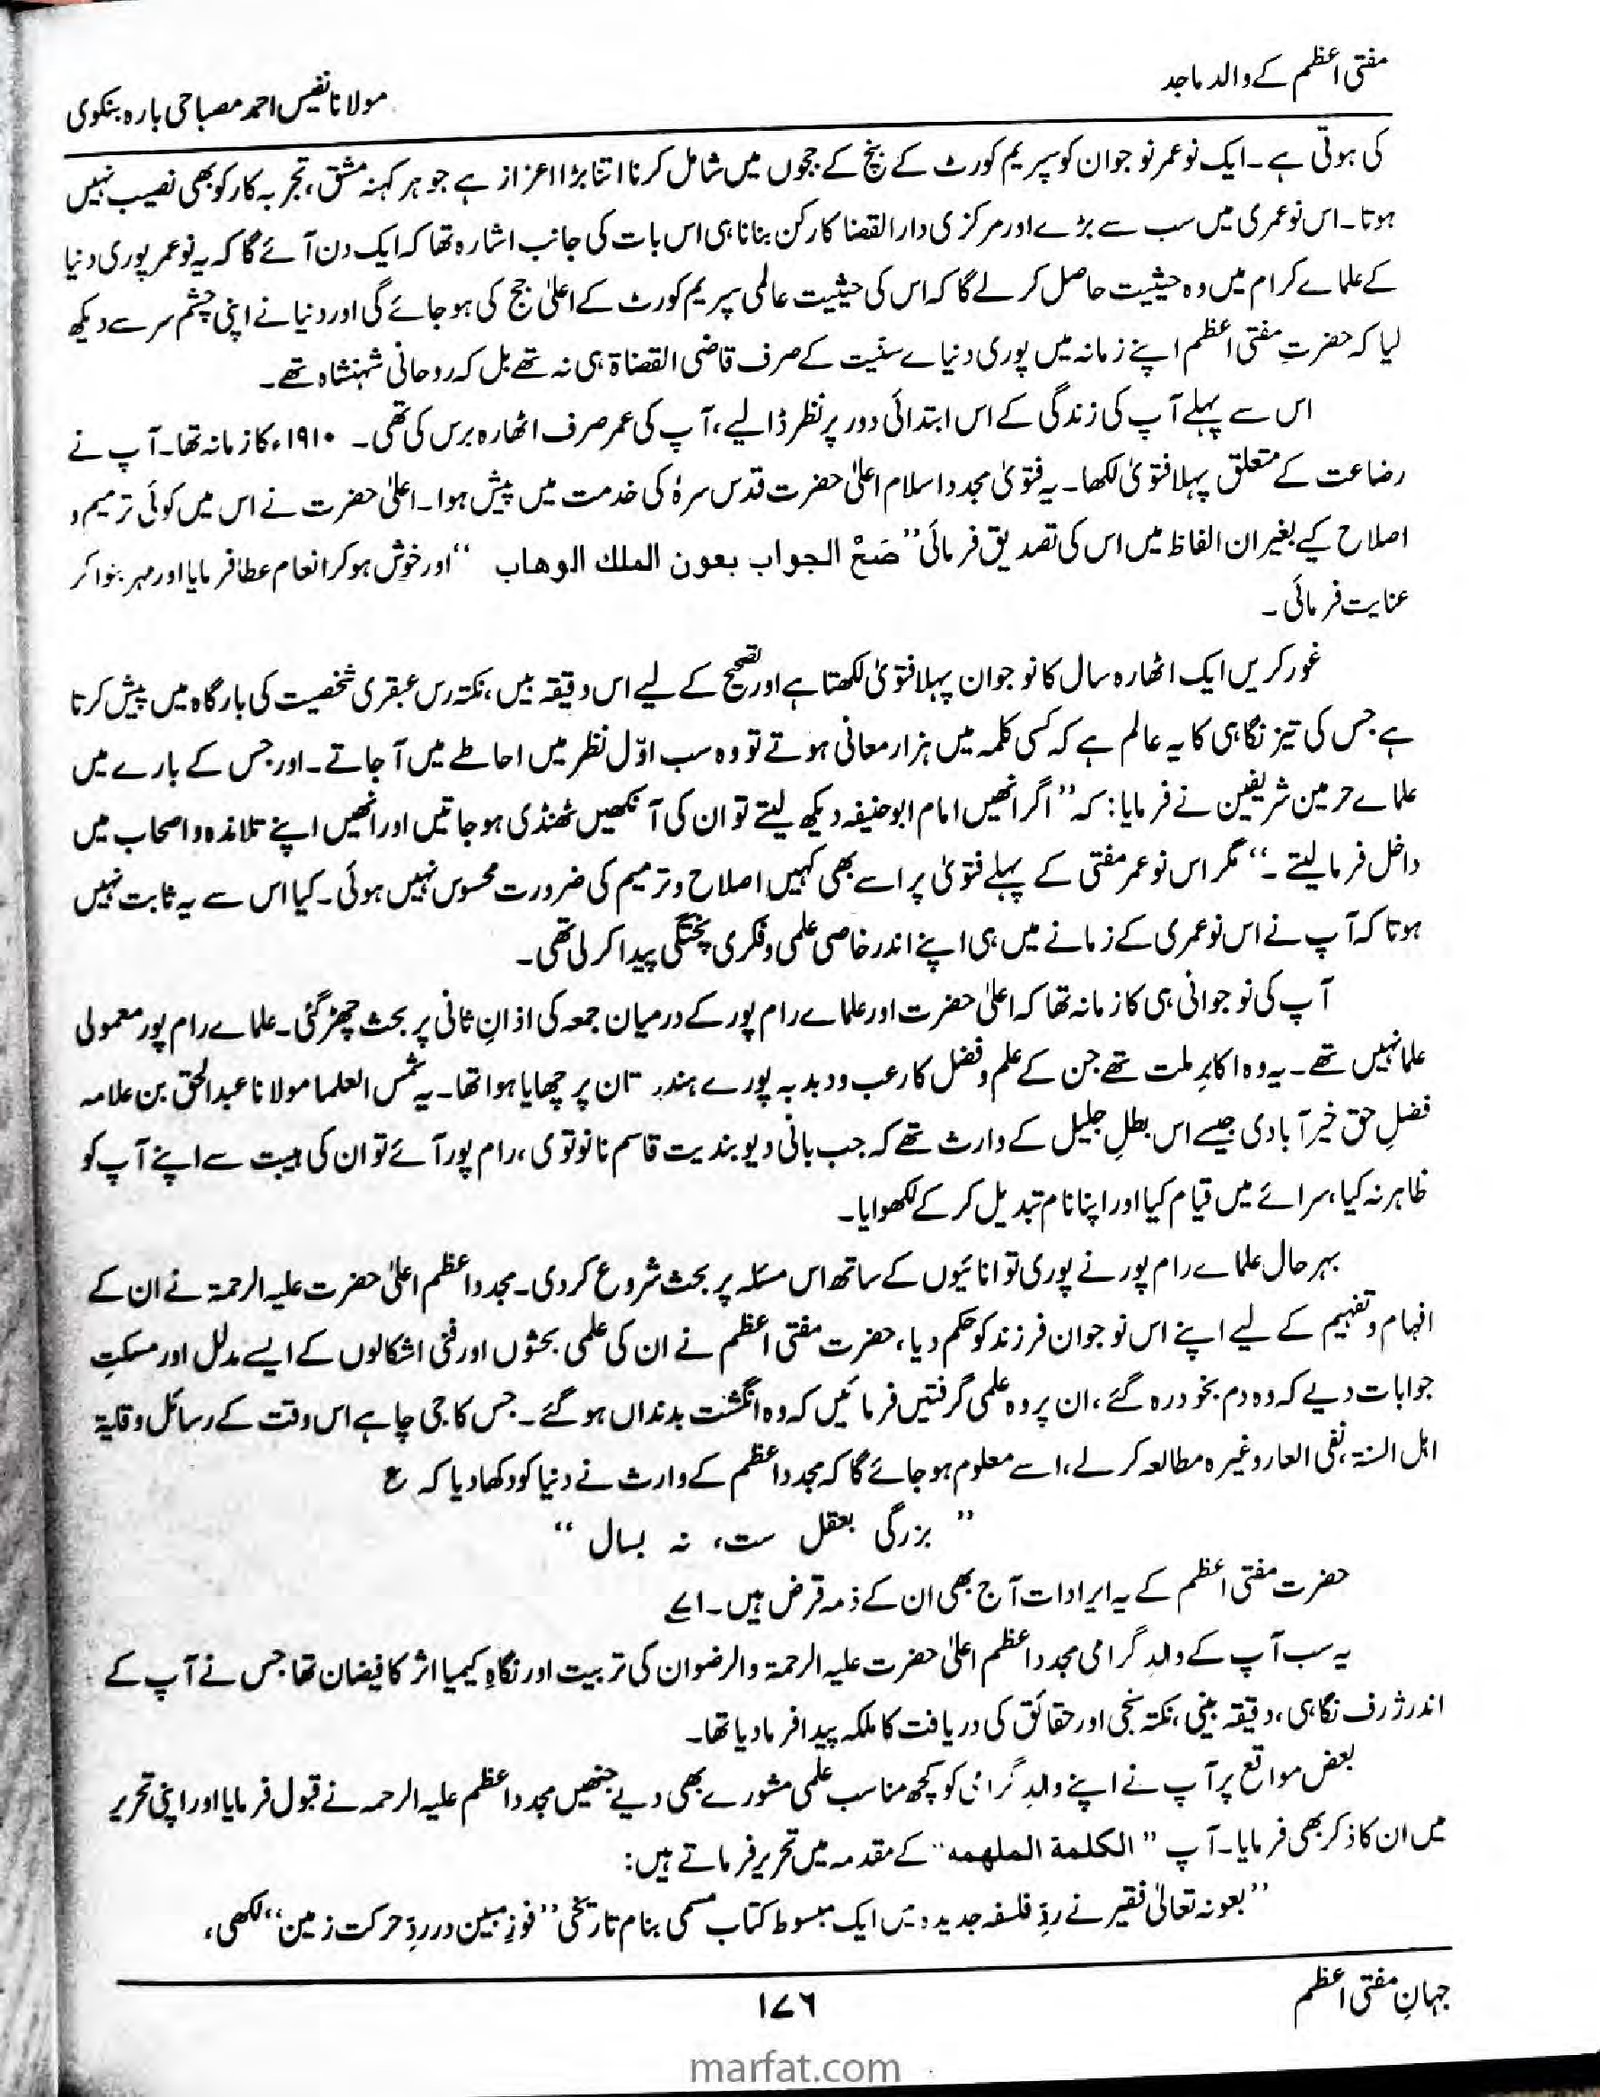 مفتی اعظم کے والد ماجد
مولانا نفیس احمد مصباحی بارہ بنکوی
کی ہوتی ہے۔ ایک نو عمر نوجوان کو سپریم کورٹ کے بنچ کے ججوں میں شامل کرنا اتنا بڑا اعزاز ہے جو ہر کہنہ مشق، تجربہ کار کو بھی نصیب نہیں
ہوتا۔ اس نو عمری میں سب سے بڑے اور مرکزی دارالقضا کا رکن بنانا ہی اس بات کی جانب اشارہ تھا کہ ایک دن آئے گا کہ یہ نو عمر پوری دنیا
کے علماے کرام میں وہ حیثیت حاصل کر لے گا کہ اس کی حیثیت عالمی سپریم کورٹ کے اعلیٰ جج کی ہو جائے گی اور دنیا نے اپنی چشم سر سے دیکھ
لیا کہ حضرتِ مفتی اعظم اپنے زمانہ میں پوری دنیاے سنّیت کے صرف قاضی القضاۃ ہی نہ تھے بل کہ روحانی شہنشاہ تھے۔
اس سے پہلے آپ کی زندگی کے اس ابتدائی دور پر نظر ڈالیے، آپ کی عمر صرف اٹھارہ برس کی تھی۔ ۱۹۱۰ء کا زمانہ تھا۔ آپ نے
رضاعت کے متعلق پہلا فتویٰ لکھا۔ یہ فتویٰ مجدد اسلام اعلیٰ حضرت قدس سرہٗ کی خدمت میں پیش ہوا۔ اعلیٰ حضرت نے اس میں کوئی ترمیم و
اصلاح کیے بغیر ان الفاظ میں اس کی تصدیق فرمائی ”صَحَّ الجواب بعون الملك الوهاب“ اور خوش ہو کر انعام عطا فرمایا اور مہر بنوا کر
عنایت فرمائی۔
غور کریں ایک اٹھارہ سال کا نوجوان پہلا فتویٰ لکھتا ہے اور تصحیح کے لیے اس دقیقہ بیں، نکتہ رس عبقری شخصیت کی بارگاہ میں پیش کرتا
ہے جس کی تیز نگاہی کا یہ عالم ہے کہ کسی کلمہ میں ہزار معانی ہوتے تو وہ سب اوّل نظر میں احاطے میں آ جاتے۔ اور جس کے بارے میں
علماے حرمین شریفین نے فرمایا: کہ ”اگر انھیں امام ابوحنیفہ دیکھ لیتے تو ان کی آنکھیں ٹھنڈی ہو جاتیں اور انھیں اپنے تلامذہ و اصحاب میں
داخل فرما لیتے۔“ مگر اس نو عمر مفتی کے پہلے فتویٰ پر اسے بھی کہیں اصلاح و ترمیم کی ضرورت محسوس نہیں ہوئی۔ کیا اس سے یہ ثابت نہیں
ہوتا کہ آپ نے اس نو عمری کے زمانے میں ہی اپنے اندر خاصی علمی و فکری پختگی پیدا کر لی تھی۔
آپ کی نوجوانی ہی کا زمانہ تھا کہ اعلیٰ حضرت اور علماے رام پور کے درمیان جمعہ کی اذانِ ثانی پر بحث چھڑ گئی۔ علماے رام پور معمولی
علما نہیں تھے۔ یہ وہ اکابرِ ملت تھے جن کے علم و فضل کا رعب و دبدبہ پورے ہندستان پر چھایا ہوا تھا۔ یہ شمس العلما مولانا عبدالحق بن علامہ
فضلِ حق خیرآبادی جیسے اس بطلِ جلیل کے وارث تھے کہ جب بانی دیوبندیت قاسم نانوتوی، رام پور آئے تو ان کی ہیبت سے اپنے آپ کو
ظاہر نہ کیا، سرائے میں قیام کیا اور اپنا نام تبدیل کر کے لکھوایا۔
بہر حال علماے رام پور نے پوری توانائیوں کے ساتھ اس مسئلہ پر بحث شروع کر دی۔ مجدد اعظم اعلیٰ حضرت علیہ الرحمۃ نے ان کے
افہام و تفہیم کے لیے اپنے اس نوجوان فرزند کو حکم دیا، حضرت مفتی اعظم نے ان کی علمی بحثوں اور فنّی اشکالوں کے ایسے مدلل اور مسکتِ
جوابات دیے کہ وہ دم بخود رہ گئے، ان پر وہ علمی گرفتیں فرمائیں کہ وہ انگشت بدنداں ہو گئے۔ جس کا جی چاہے اس وقت کے رسائل وقایۃ
اہل السنۃ، نفی العار وغیرہ مطالعہ کر لے، اسے معلوم ہو جائے گا کہ مجدد اعظم کے وارث نے دنیا کو دکھا دیا کہ ع
” بزرگی بعقل ست، نہ بسال “
حضرت مفتی اعظم کے یہ ایرادات آج بھی ان کے ذمہ قرض ہیں۔ اے
یہ سب آپ کے والدِ گرامی مجدد اعظم اعلیٰ حضرت علیہ الرحمۃ والرضوان کی تربیت اور نگاہِ کیمیا اثر کا فیضان تھا جس نے آپ کے
اندر ژرف نگاہی، دقیقہ بینی، نکتہ سنجی اور حقائق کی دریافت کا ملکہ پیدا فرما دیا تھا۔
بعض مواقع پر آپ نے اپنے والدِ گرامی کو کچھ مناسب علمی مشورے بھی دیے جنھیں مجدد اعظم علیہ الرحمہ نے قبول فرمایا اور اپنی تحریر
میں ان کا ذکر بھی فرمایا۔ آپ ”الکلمة الملهمه“ کے مقدمہ میں تحریر فرماتے ہیں:
”بعونہ تعالیٰ فقیر نے ردِّ فلسفہ جدیدہ میں ایک مبسوط کتاب مسمی بنام تاریخی ”فوزِ مبین در ردِّ حرکت زمین“ لکھی،
جہانِ مفتی اعظم
۱۷۶
marfat.com